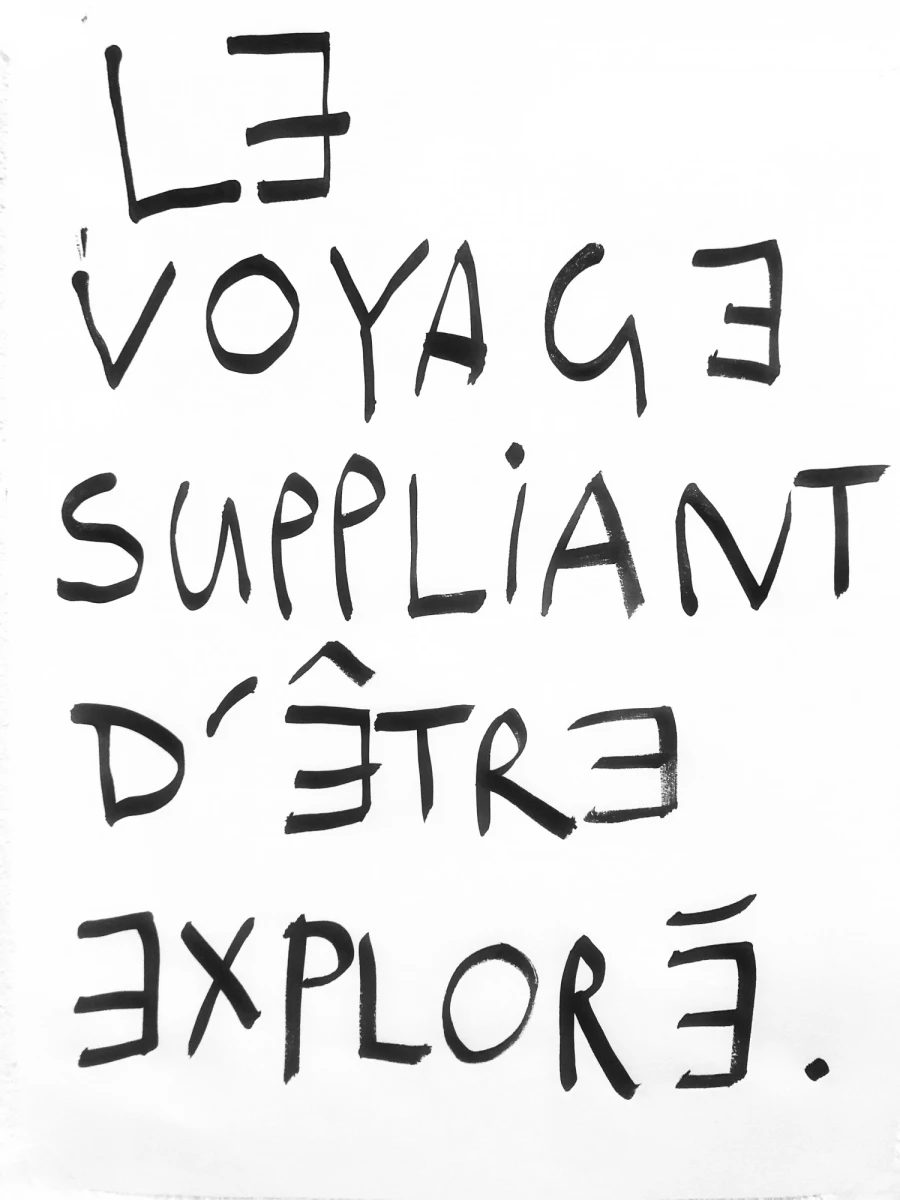 LE
VOYAGE
SUPPLiANT
D'ÊTRE
EXPLORÉ.